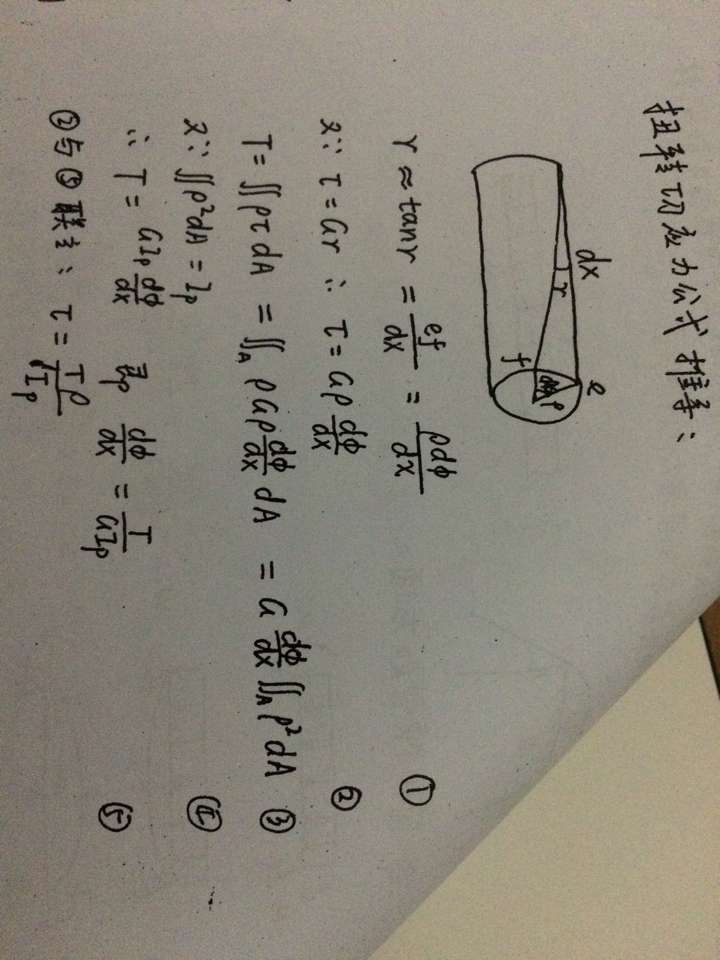 扭转切应力公式推导：
dx
r
e
f
dφ
ρ
r ≈ tanr = ef/dx = ρdφ/dx ①
又∵ τ = Gr ∴ τ = Gρ dφ/dx ②
T = ∬ρτdA = ∬_A ρGρ dφ/dx dA = G dφ/dx ∬_A ρ²dA ③
又∵ ∬ρ²dA = Iρ ④
∴ T = GIρ dφ/dx 即 dφ/dx = T/GIρ ⑤
②与⑤联立： τ = Tρ/Iρ